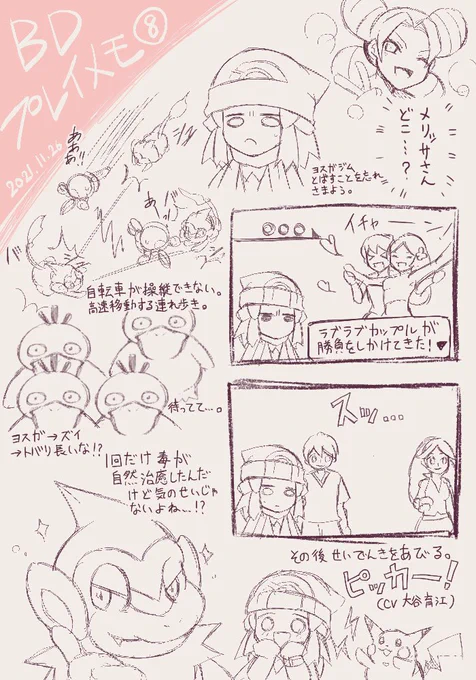 BD
プレイメモ⑧
2021.11.26
メリッサさん
どこ…?
ヨスガジム
とばすことを忘れ
さまよう。
ああぁ!
あぁ!
バ
自転車が操縦できない。
高速移動する連れ歩き。
イチャーーン
ラブラブカップルが
勝負をしかけてきた!♥
待ってて…。
ヨスガ→ズイ
→トバリ長いな!?
1回だけ毒が
自然治癒したんだ
けど気のせいじゃ
ないよね…!?
スッ…
その後せいでんきをあびる。
ピッカー!
(CV 大谷育江)